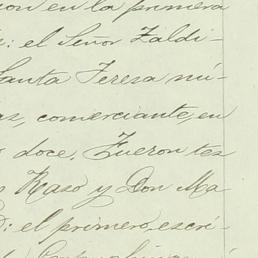 en la primera
: el Señor Zaldi-
Santa Teresa nú-
as, comerciante, en
doce. Fueron tes
Raso y Don Ma
: el primero, escri-